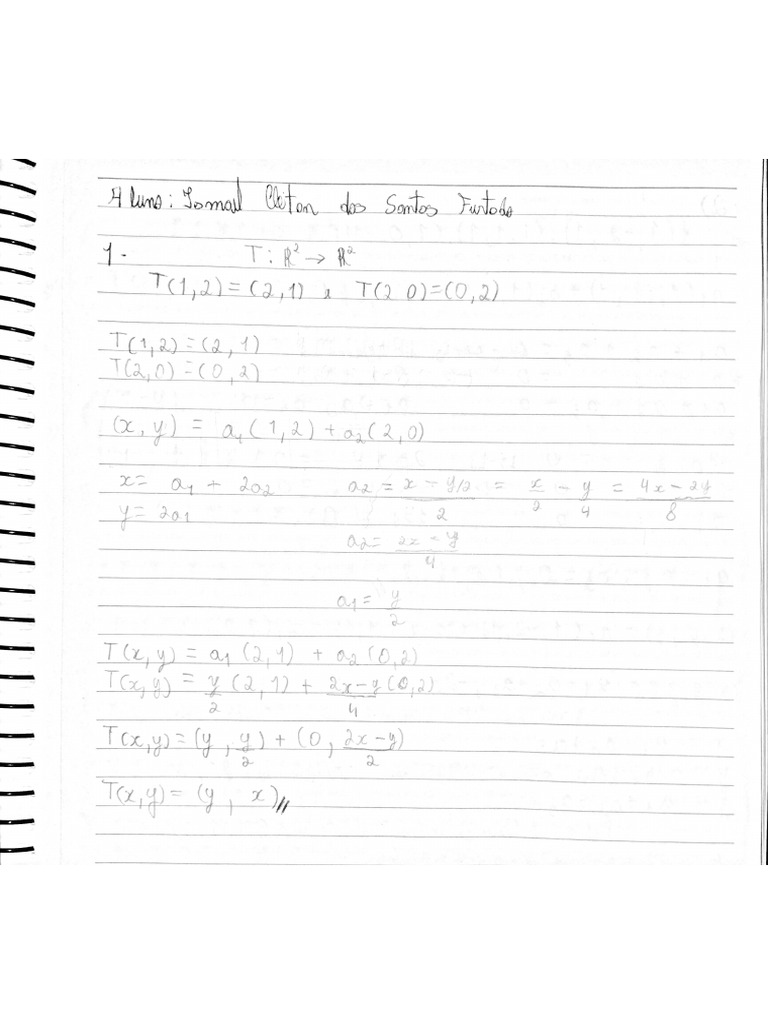 Aluno: Ismael Cleiton dos Santos Furtado
1. T: ℝ² → ℝ²
T(1,2)=(2,1) e T(2 0)=(0,2)
T(1,2)=(2,1)
T(2,0)=(0,2)
(x,y) = a₁(1,2)+a₂(2,0)
x= a₁ + 2a₂ a₂ = (x - y/2)/2 = x/2 - y/4 = (4x-2y)/8
y= 2a1
a₂= (2x - y)/4
a₁= y/2
T(x,y) = a₁(2,1) + a₂(0,2)
T(x,y) = y/2 (2,1) + (2x-y)/4 (0,2)
T(x,y)=(y, y/2)+(0, (2x-y)/2)
T(x,y)= (y, x)//